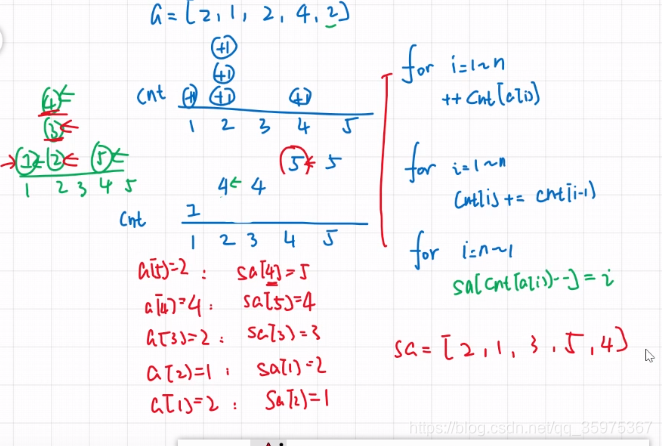 a = [2, 1, 2, 4, 2]
+1
+1
cnt +1 +1 +1
1 2 3 4 5
4
3
1 2 5
1 2 3 4 5
5 5
4 4
cnt 1
1 2 3 4 5
a[5]=2 : sa[4]=5
a[4]=4 : sa[5]=4
a[3]=2 : sa[3]=3
a[2]=1 : sa[1]=2
a[1]=2 : sa[2]=1
for i=1~n
++cnt[a[i]]
for i=1~n
cnt[i] += cnt[i-1]
for i=n~1
sa[cnt[a[i]]--] = i
sa = [2, 1, 3, 5, 4]
https://blog.csdn.net/qq_35975367